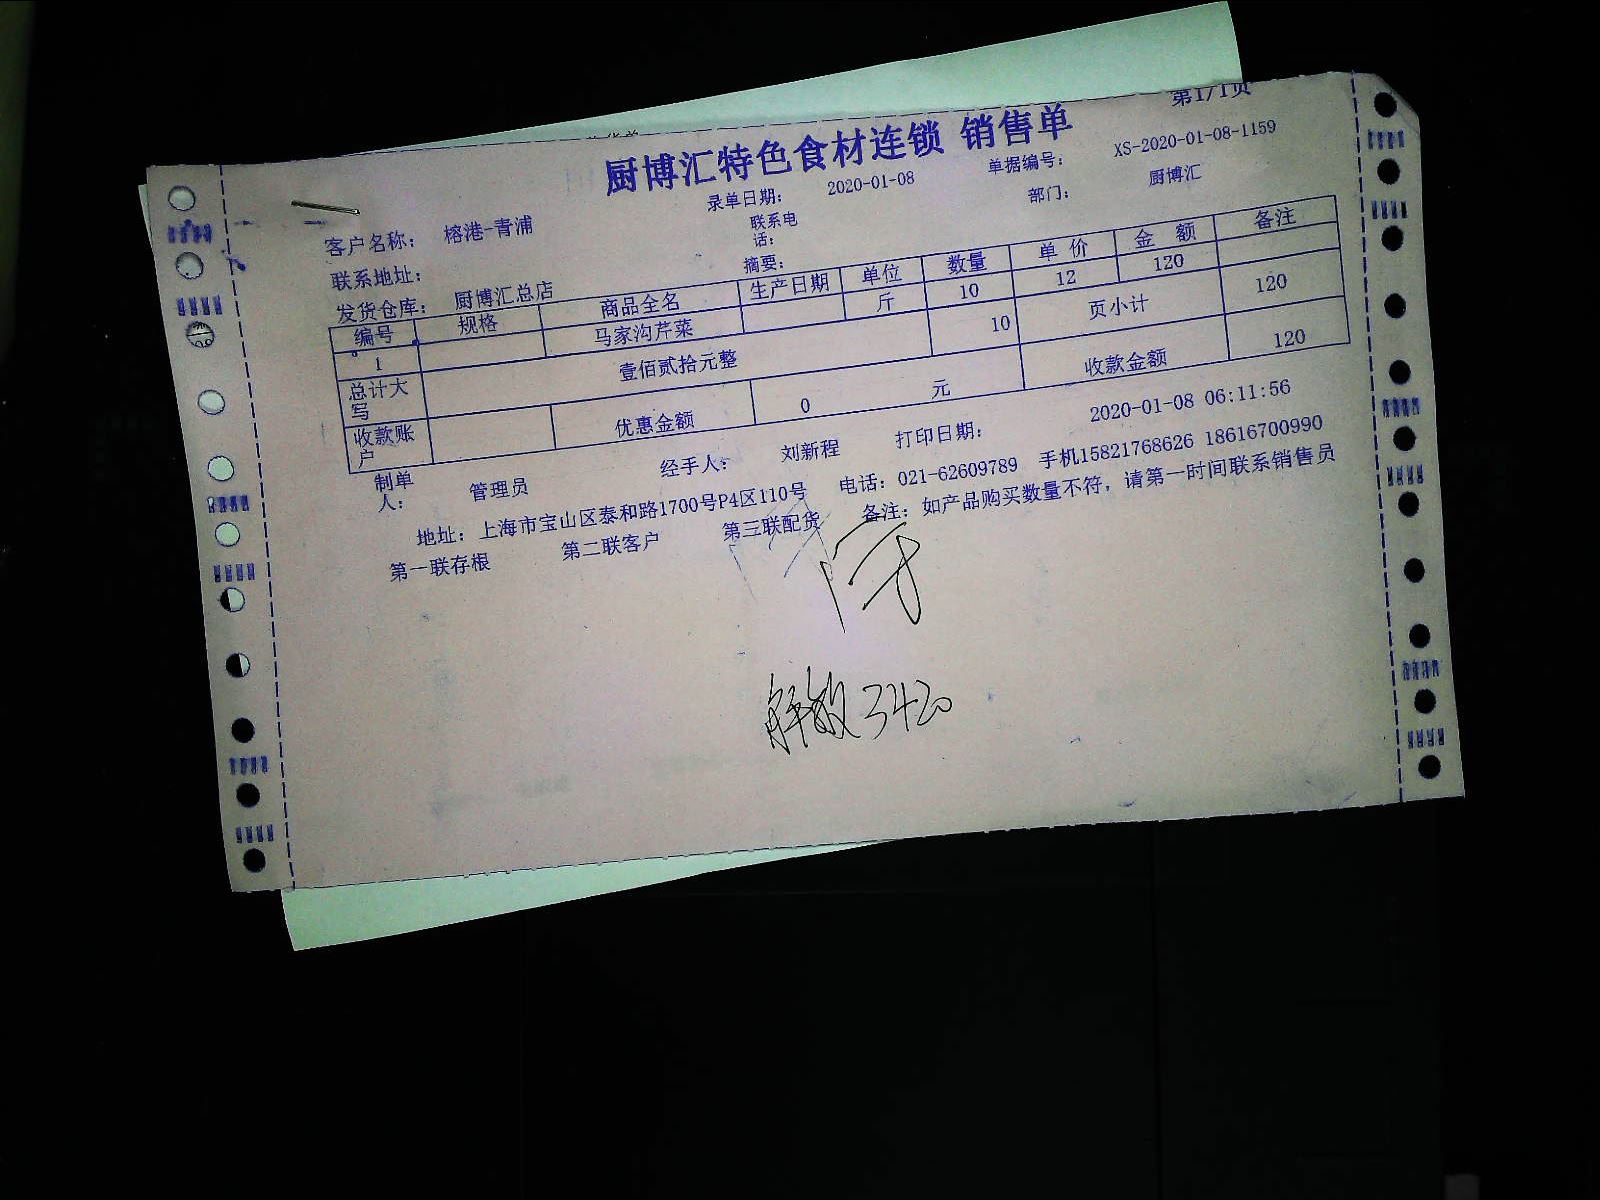 第1/1页
厨博汇特色食材连锁 销售单
录单日期： 2020-01-08 单据编号： XS-2020-01-08-1159
客户名称： 榕港-青浦 联系电话： 部门： 厨博汇
联系地址： 摘要：
发货仓库： 厨博汇总店
编号 规格 商品全名 生产日期 单位 数量 单价 金额 备注
1 马家沟芹菜 斤 10 12 120
总计大写 壹佰贰拾元整 10 页小计 120
收款账户 优惠金额 0 元 收款金额 120
制单人： 管理员 经手人： 刘新程 打印日期： 2020-01-08 06:11:56
地址：上海市宝山区泰和路1700号P4区110号 电话：021-62609789 手机15821768626 18616700990
第一联存根 第二联客户 第三联配货 备注：如产品购买数量不符，请第一时间联系销售员
解放3420